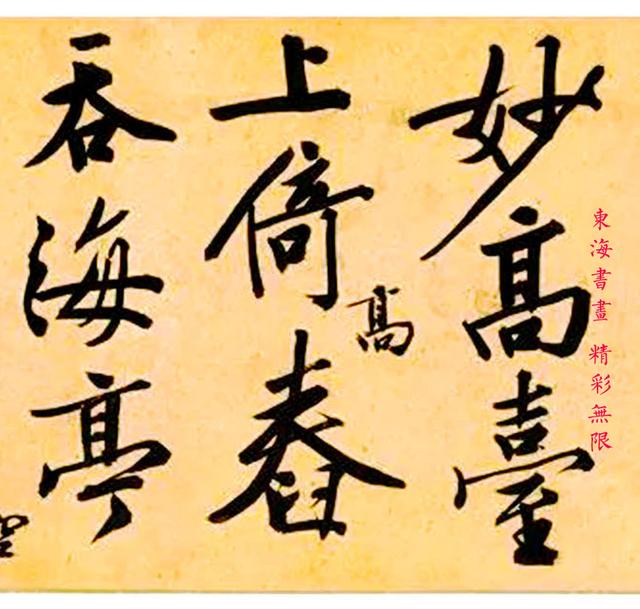 東海書畫 精彩無限
妙高臺
上倚舂
高
吞海亭